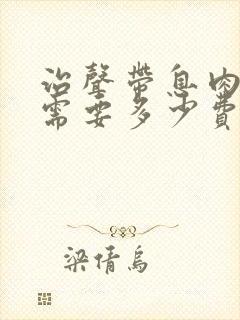 治聲帶息肉
需要多少費
梁倩烏